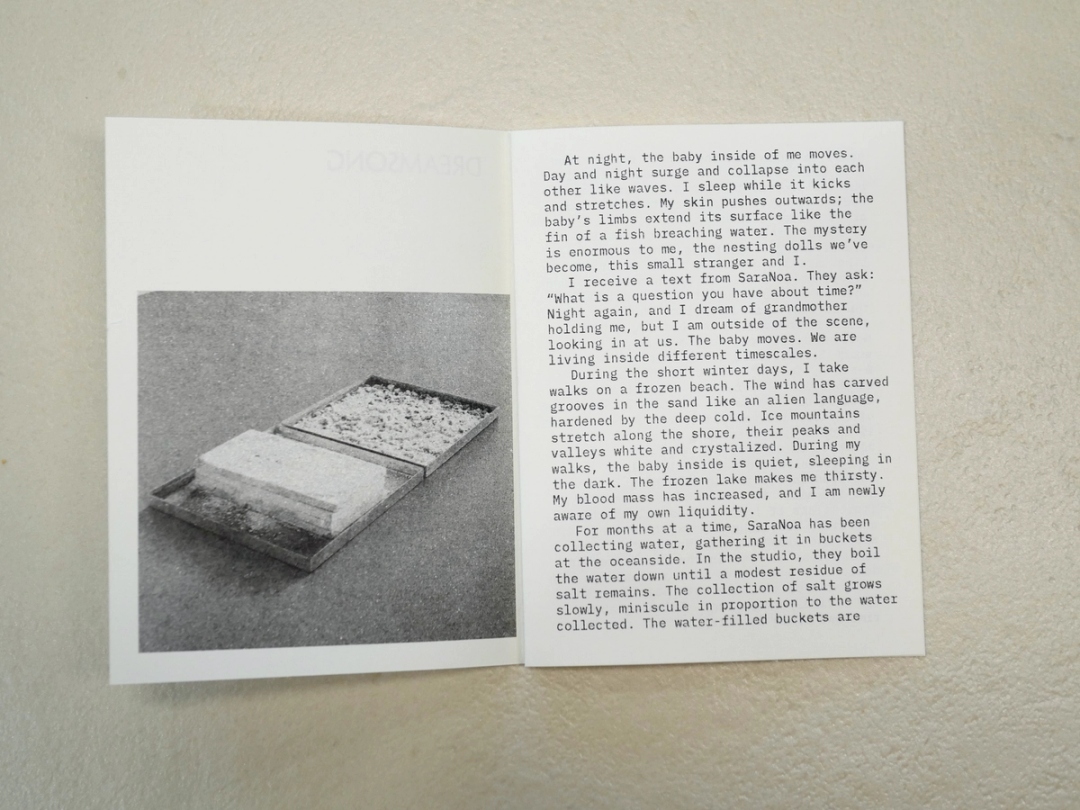 DREAMSONG
At night, the baby inside of me moves.
Day and night surge and collapse into each
other like waves. I sleep while it kicks
and stretches. My skin pushes outwards; the
baby's limbs extend its surface like the
fin of a fish breaching water. The mystery
is enormous to me, the nesting dolls we've
become, this small stranger and I.
I receive a text from SaraNoa. They ask:
“What is a question you have about time?”
Night again, and I dream of grandmother
holding me, but I am outside of the scene,
looking in at us. The baby moves. We are
living inside different timescales.
During the short winter days, I take
walks on a frozen beach. The wind has carved
grooves in the sand like an alien language,
hardened by the deep cold. Ice mountains
stretch along the shore, their peaks and
valleys white and crystalized. During my
walks, the baby inside is quiet, sleeping in
the dark. The frozen lake makes me thirsty.
My blood mass has increased, and I am newly
aware of my own liquidity.
For months at a time, SaraNoa has been
collecting water, gathering it in buckets
at the oceanside. In the studio, they boil
the water down until a modest residue of
salt remains. The collection of salt grows
slowly, miniscule in proportion to the water
collected. The water-filled buckets are